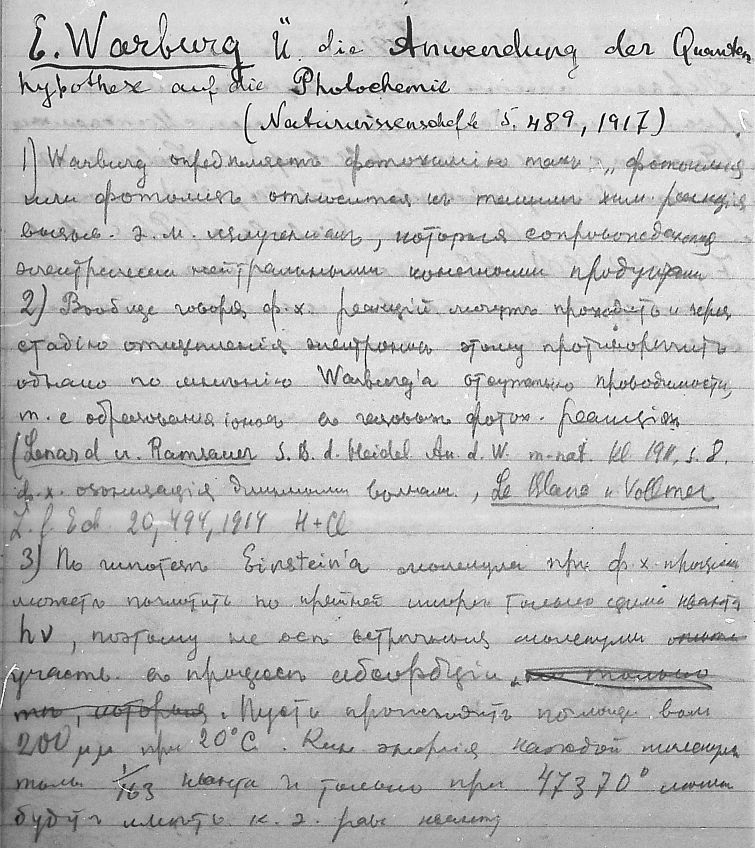 E. Warburg Ü. die Anwendung der Quanten
hypothese auf die Photochemie
(Naturwissenschafte S. 489, 1917)
1) Warburg опредѣляетъ фотохимію такъ: „фотохимія
или фотолизъ относится къ такимъ хим. реакція
вызыв. э. м. излученіемъ, которыя сопровождаются
электрически нейтральными конечными продуктами
2) Вообще говоря ф. х. реакціи могутъ проходить и через
стадію отщепленія электроновъ этому противорѣчитъ
однако по мнѣнію Warburg'а отсутствіе проводимости,
т. е образованія іоновъ въ газовыхъ фотох. реакціях
(Lenard u. Ramsauer S. B. d. Heidel Ak. d. W. m-nat. Kl 1911. s. 8.
ф. х. озонизація длинными волнами., Le Blanc u Vollmer
Z. f. El. 20, 494, 1914 H + Cl
3) По гипотезѣ Einstein'а молекула при ф. х. процессѣ
можетъ поглотить по крайней мѣрѣ только одинъ квантъ
hν, поэтому не всѣ встрѣчныя молекулы
участв. въ процессѣ абсорбціи, не только
тѣ, которыя. Пусть происходитъ помощи волн
200 μμ при 20°C. Кин энергія каждой молекулы
только 1/163 кванта и только при 47370°
будутъ имѣть к. э. рав. кванту